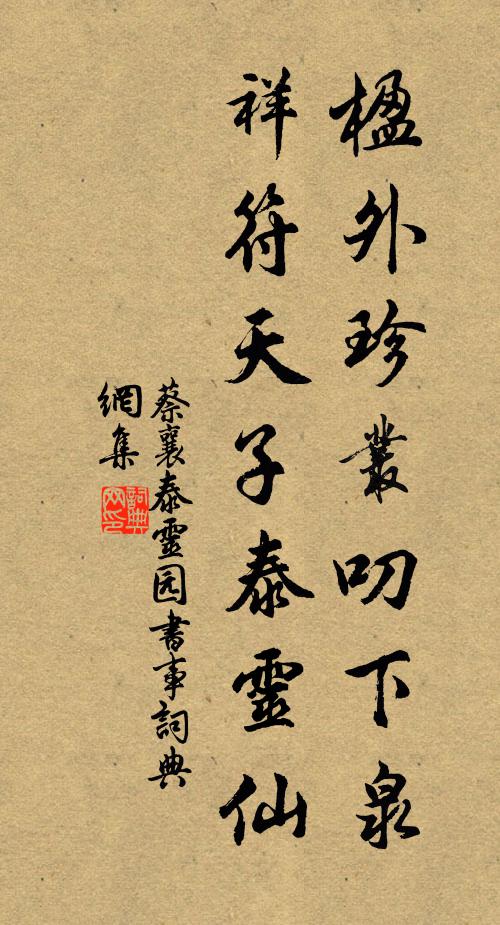 楹外珍叢叨下泉
祥符天子泰靈仙
蔡襄泰靈园書事詞典
網集
詞典
网印